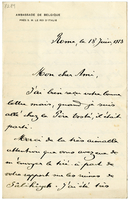 AMBASSADE DE BELGIQUE
PRÈS S. M. LE ROI D'ITALIE
Rome, le 18 juin, 1913
Mon cher Ami,
J'ai bien reçu votre bonne
lettre mais, quand je suis
allé chez le Dr Costi, il était
parti.
Merci de la très aimable
attention que vous avez eue de
m'envoyer le tiré à part de
votre rapport sur les ruines de
J'ai été très